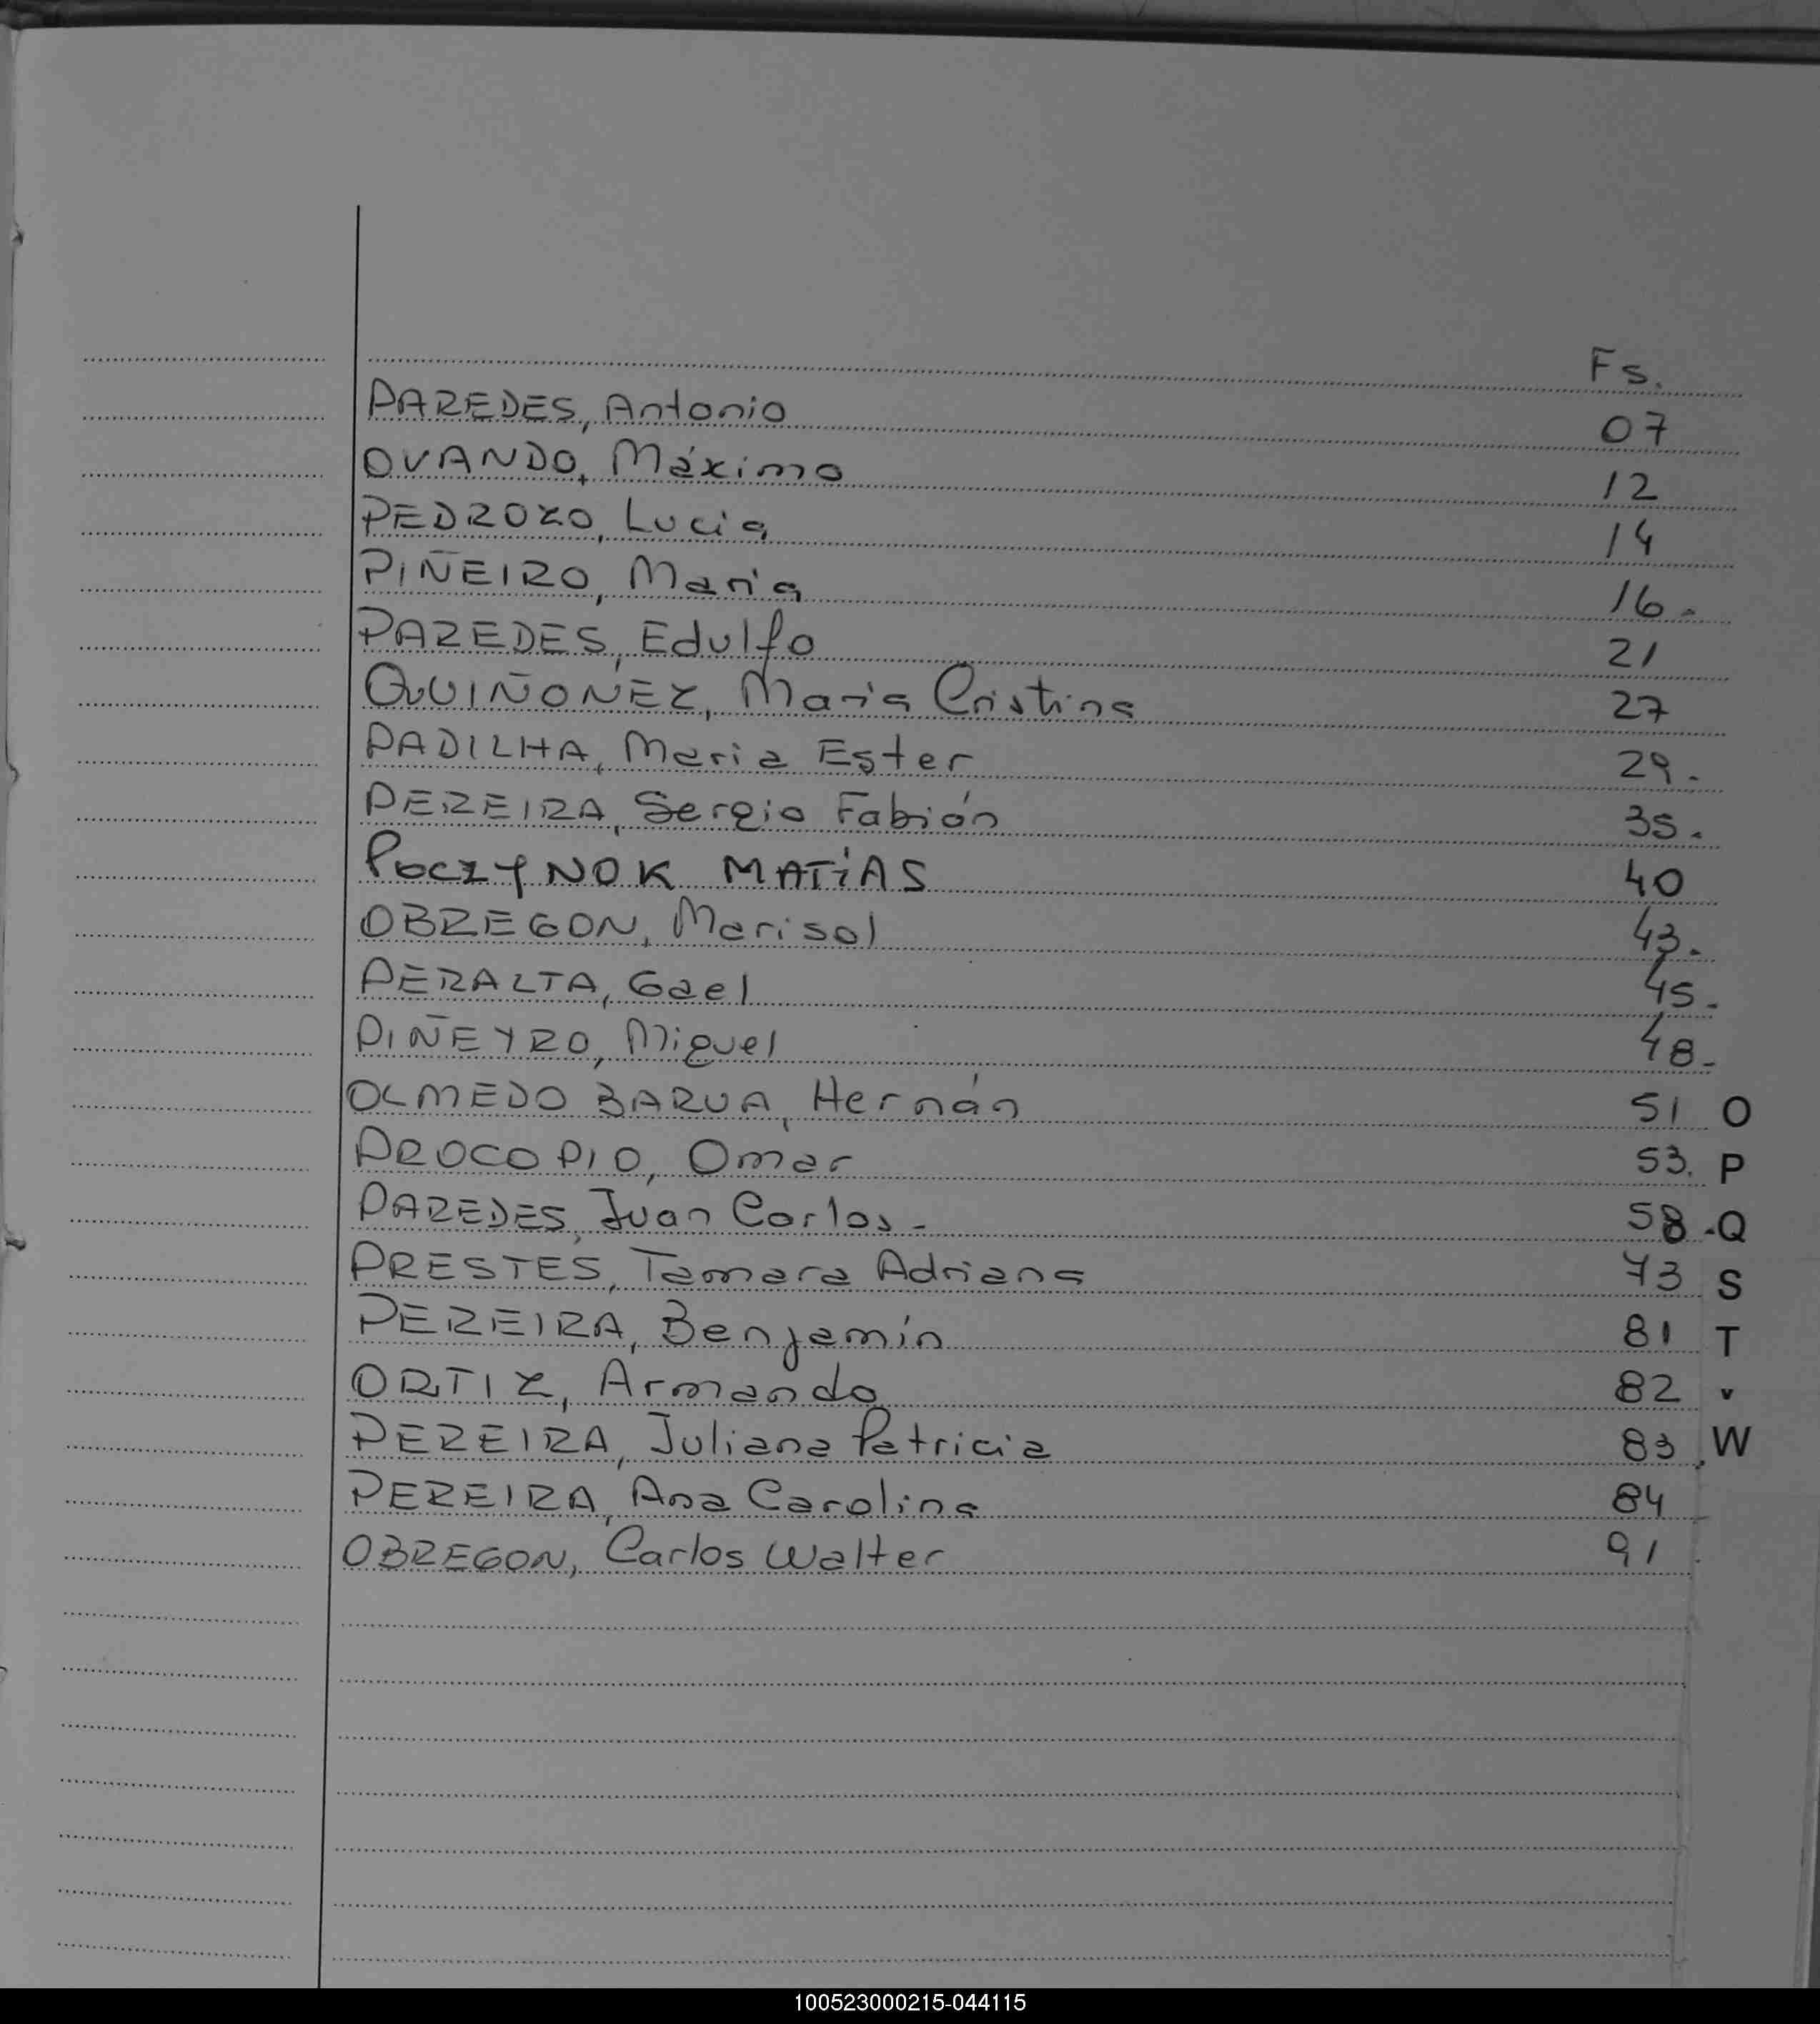 Fs.
PAREDES, Antonio 07
OVANDO, Máximo 12
PEDROZO, Lucia 14
PIÑEIRO, Maria 16.-
PAREDES, Edulfo 21
QUIÑONEZ, Maria Cristina 27
PADILHA, Maria Ester 29.
PEREIRA, Sergio Fabián 35.
POCZYNOK MATÍAS 40
OBREGON, Marisol 43.
PERALTA, Gael 45.
PIÑEYRO, Miguel 48.-
OLMEDO BARUA, Hernán 51 O
PROCOPIO, Omar 53. P
PAREDES, Juan Carlos.- 58.- Q
PRESTES, Tamara Adriana 73 S
PEREIRA, Benjamín 81 T
ORTIZ, Armando 82 v
PEREIRA, Juliana Patricia 83 W
PEREIRA, Ana Carolina 84
OBREGON, Carlos Walter 91
100523000215-044115